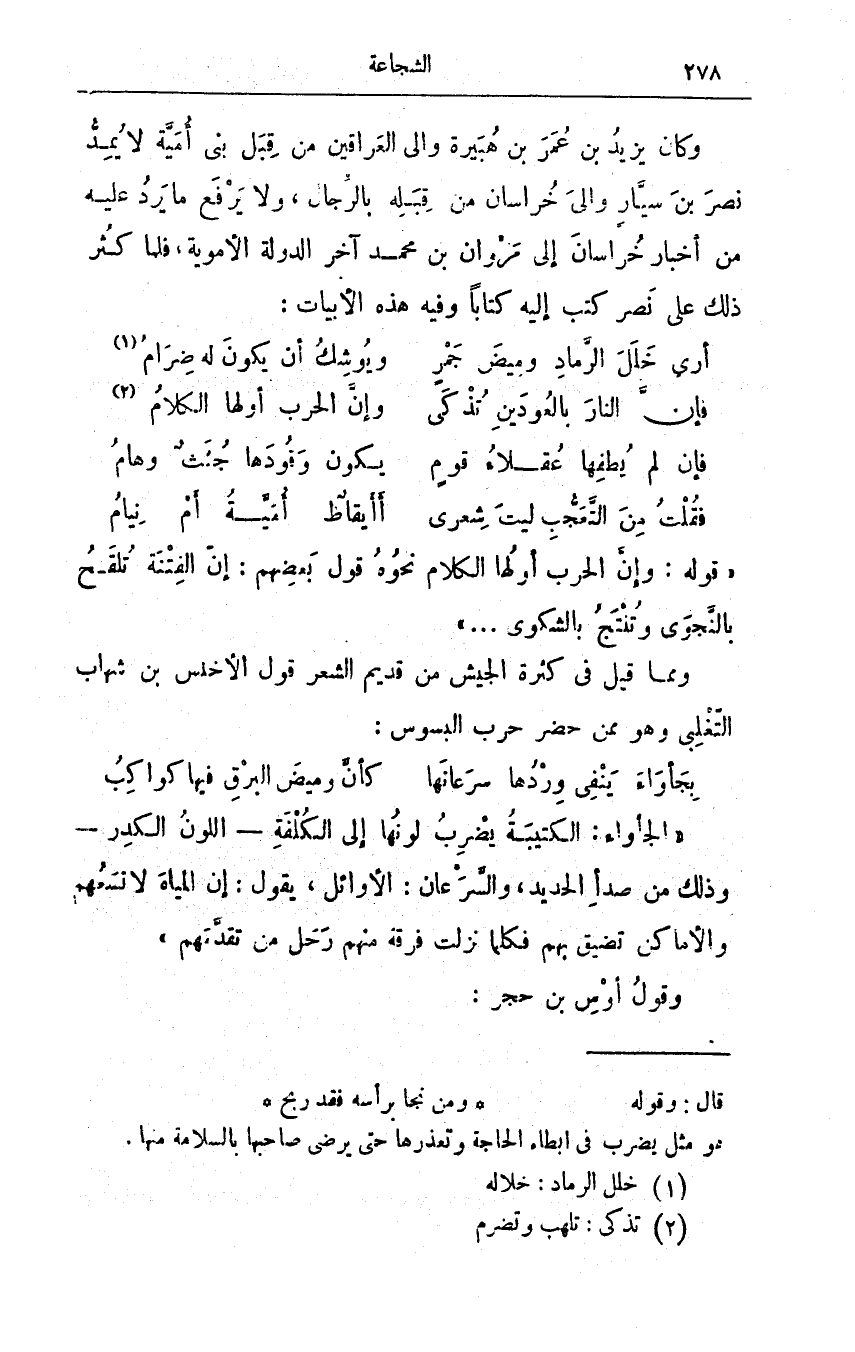 ٢٧٨ الشجاعة
وكان يزيدُ بن عُمَرَ بن هُبَيرة والى العَراقين من قِبَل بنى أُمَيَّة لا يُمِدُّ
نصرَ بنَ سيَّارٍ والىَ خُراسان من قِبَلِه بالرِّجال، ولا يَرْفَع ما يَرِدُ عليه
من أخبار خُراسانَ إلى مَرْوان بن محمد آخر الدولة الأموية، فلما كثُر
ذلك على نَصر كتب إليه كتاباً وفيه هذه الأبيات :
أرى خَلَلَ الرَّمادِ وميضَ جَمْرٍ ويُوشِكُ أن يكونَ له ضِرَامُ (١)
فإنَّ النارَ بالعُودَينِ تُذْكَى وإنَّ الحرب أولها الكلامُ (٢)
فإن لم يُطفِها عُقلاءُ قومٍ يكون وَقُودَها جُثَثٌ وهامُ
فقُلْتُ مِنَ التَّعَجُّبِ ليتَ شِعرى أَأَيقاظٌ أُمَيَّةُ أَمْ نِيامُ
« قوله : وإنَّ الحرب أولُها الكلام نحوُهُ قول بَعضِهم : إنّ الفِتْنَة تُلقَحُ
بالنَّجوَى وتُنْتَجُ بالشكوى ...»
ومما قيل فى كثرة الجيش من قديم الشعر قول الأخنس بن شهاب
التَّغْلِبى وهو ممن حضر حرب البسوس :
بِجَأوَاءَ يَنْفِى وِرْدُها سرَعانَها كأنَّ وميضَ البرْقِ فيها كواكِبُ
« الجأواء : الكتيبَةُ يضْرِبُ لونُها إلى الكُلْفَةِ — اللونُ الكدِر —
وذلك من صدأِ الحديد، والسَّرَعان : الأوائل، يقول : إن المياهَ لا تسَعُهم
والأماكن تضيق بهم فكلما نزلت فرقة منهم رَحَل من تقدَّمَهم »
وقولُ أوْسِ بن حجر :
قال : وقوله * ومن نجا برأسه فقد ربح *
هو مثل يضرب فى ابطاء الحاجة وتعذرها حتى يرضى صاحبها بالسلامة منها .
(١) خلل الرماد : خلاله
(٢) تذكى : تلهب وتضرم